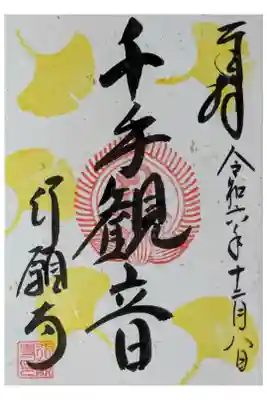 奉拝
令和六年十二月八日
千手観音
行願寺